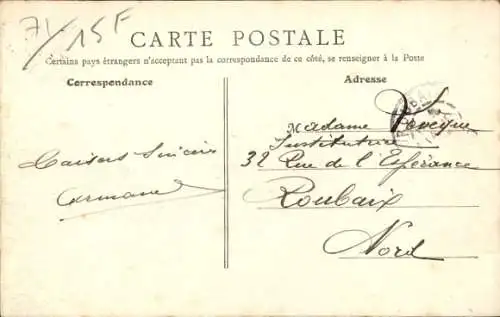 71/15F
CARTE POSTALE
Certains pays étrangers n'acceptent pas la correspondance de ce côté, se renseigner à la Poste
Correspondance
Adresse
Baisers Sincères
Germaine
Madame
Institutrice
32 Rue de l'Espérance
Roubaix
Nord